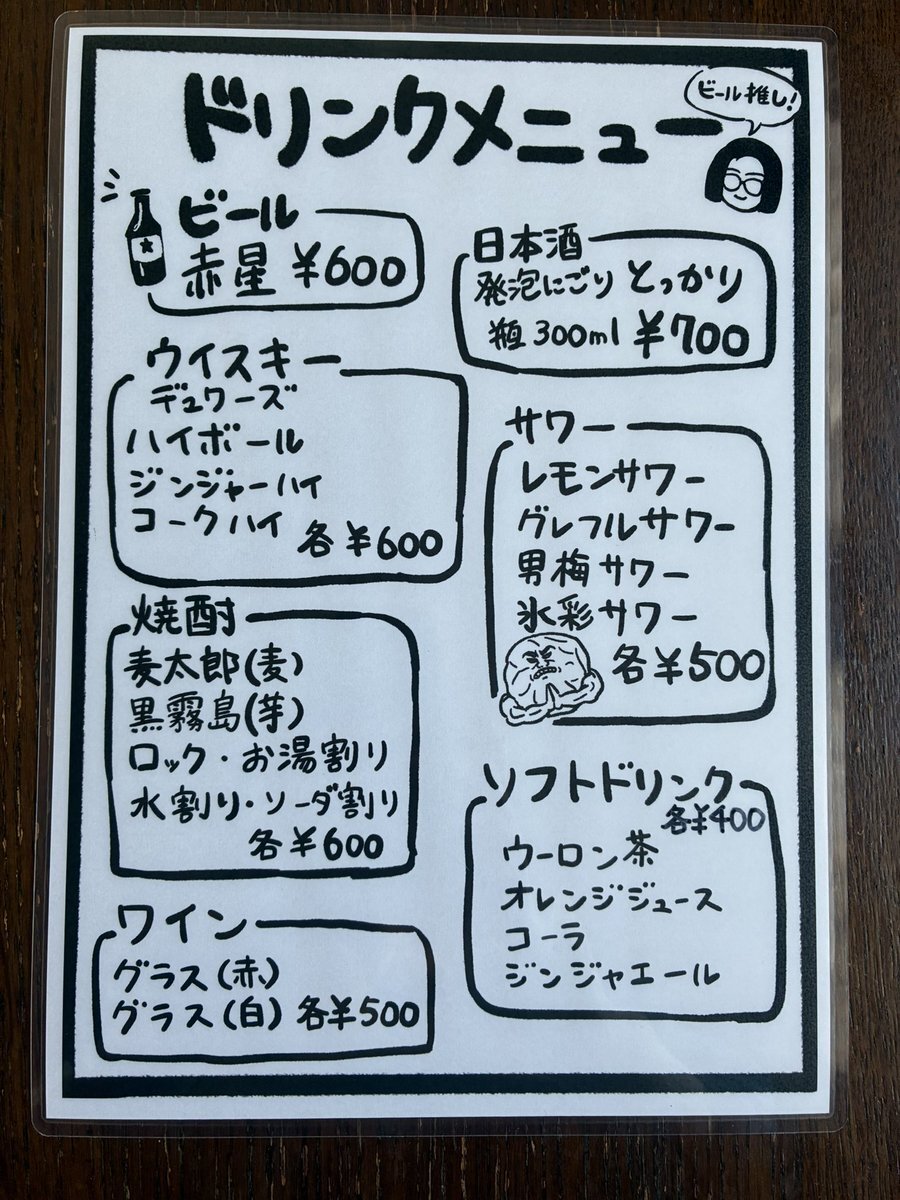 ドリンクメニュー
ビール推し!
ビール
赤星 ¥600
日本酒
発泡にごり とっかり
瓶 300ml ¥700
ウイスキー
デュワーズ
ハイボール
ジンジャーハイ
コークハイ
各¥600
サワー
レモンサワー
グレフルサワー
男梅サワー
氷彩サワー
各¥500
焼酎
麦太郎(麦)
黒霧島(芋)
ロック・お湯割り
水割り・ソーダ割り
各¥600
ソフトドリンク
各¥400
ウーロン茶
オレンジジュース
コーラ
ジンジャエール
ワイン
グラス(赤)
グラス(白) 各¥500